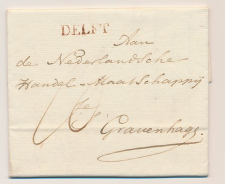 DELFT
Aan
de Nederlandsche
Handel-Maatschappij
te
s'Gravenhage.